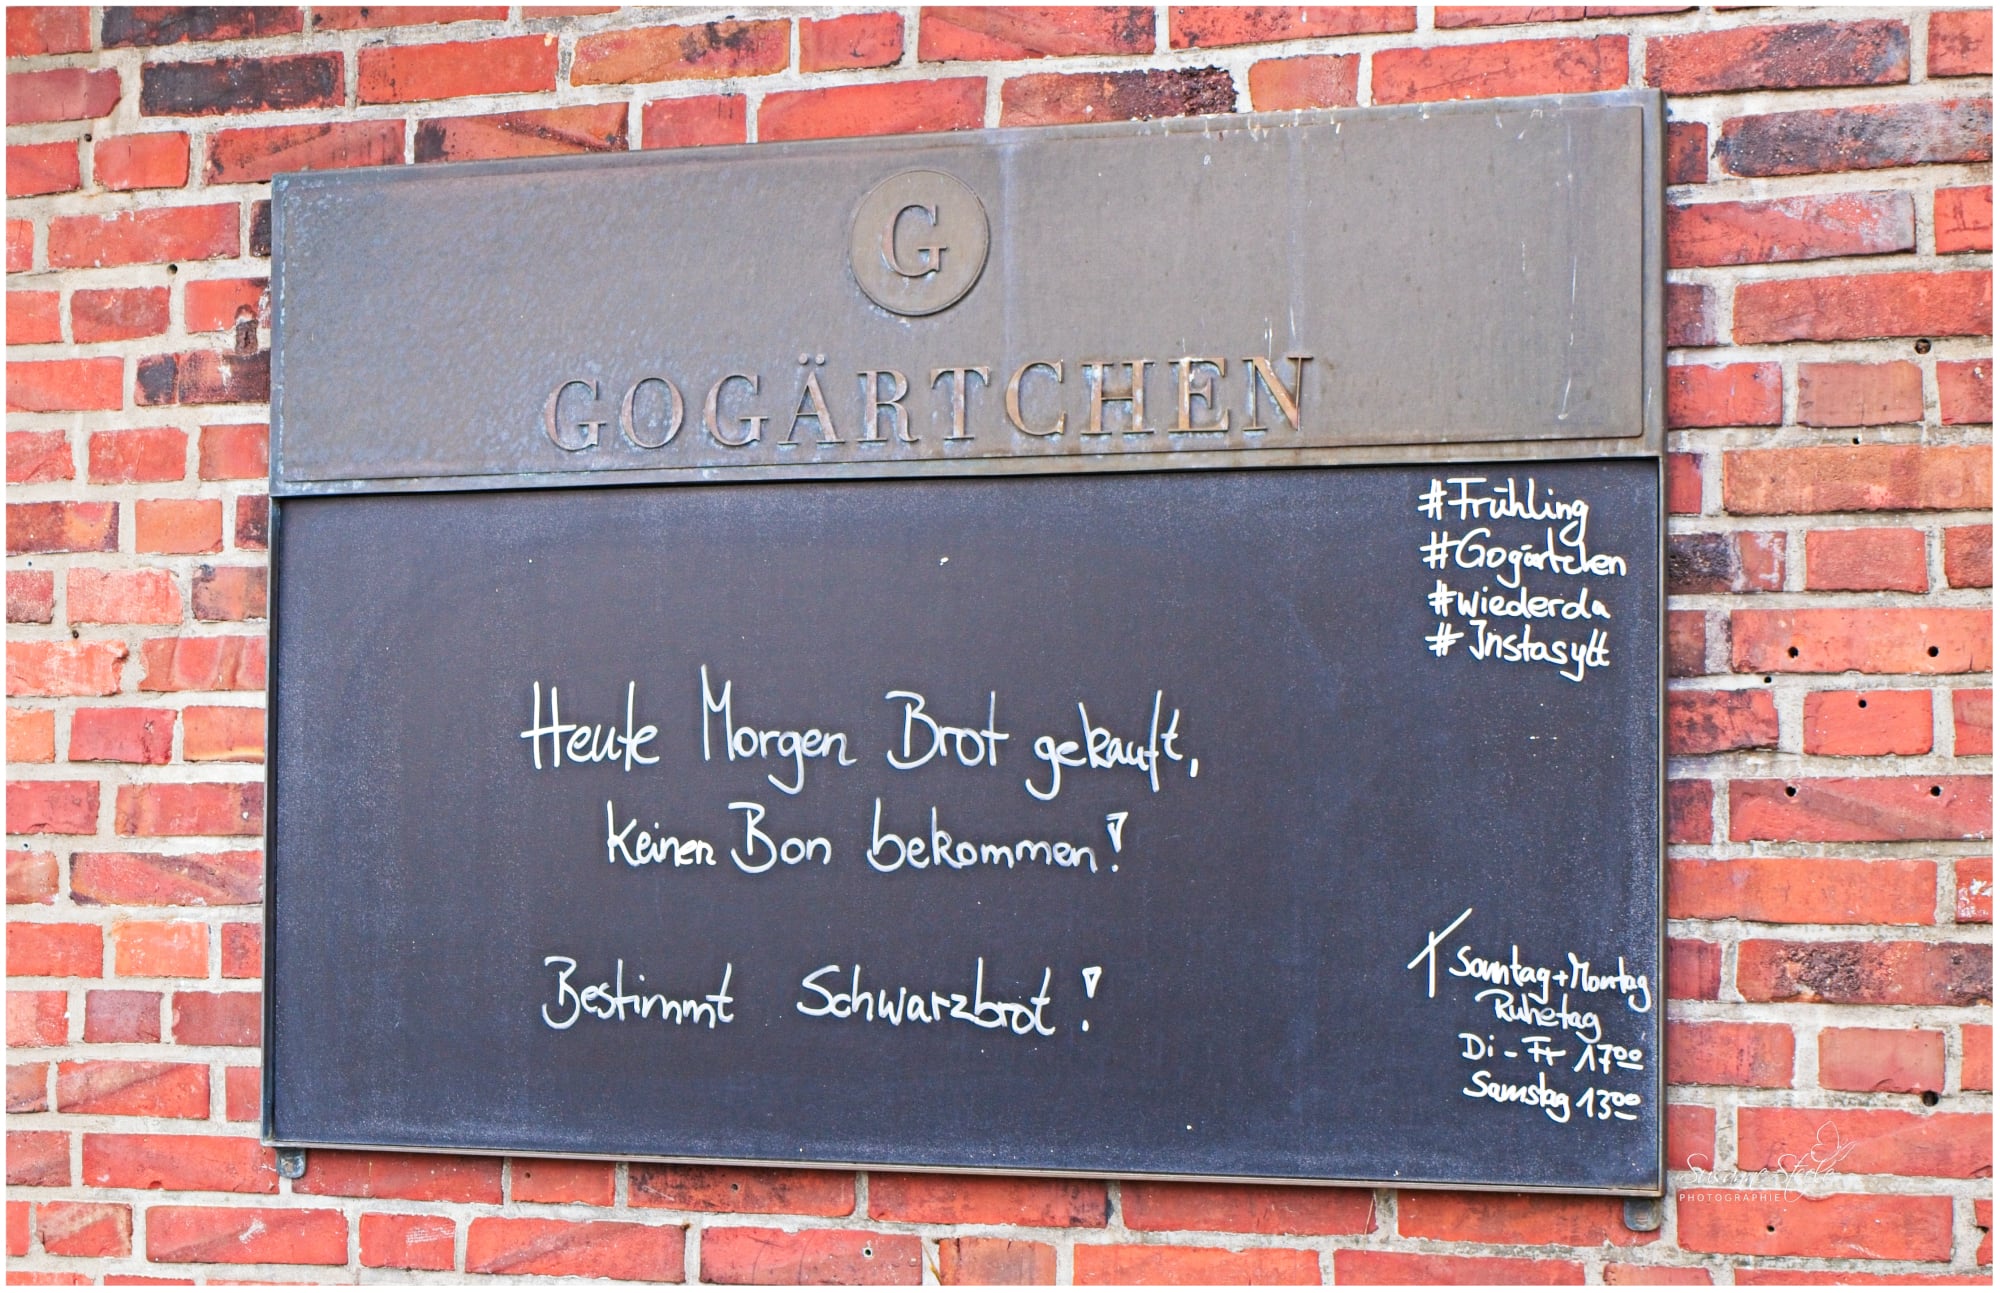 G
GOGÄRTCHEN
#Frühling
#Gogärtchen
#wiederda
# Instasylt
Heute Morgen Brot gekauft,
keinen Bon bekommen!
Bestimmt Schwarzbrot!
Sonntag + Montag
Ruhetag
Di - Fr 17⁰⁰
Samstag 13⁰⁰
PHOTOGRAPHIE